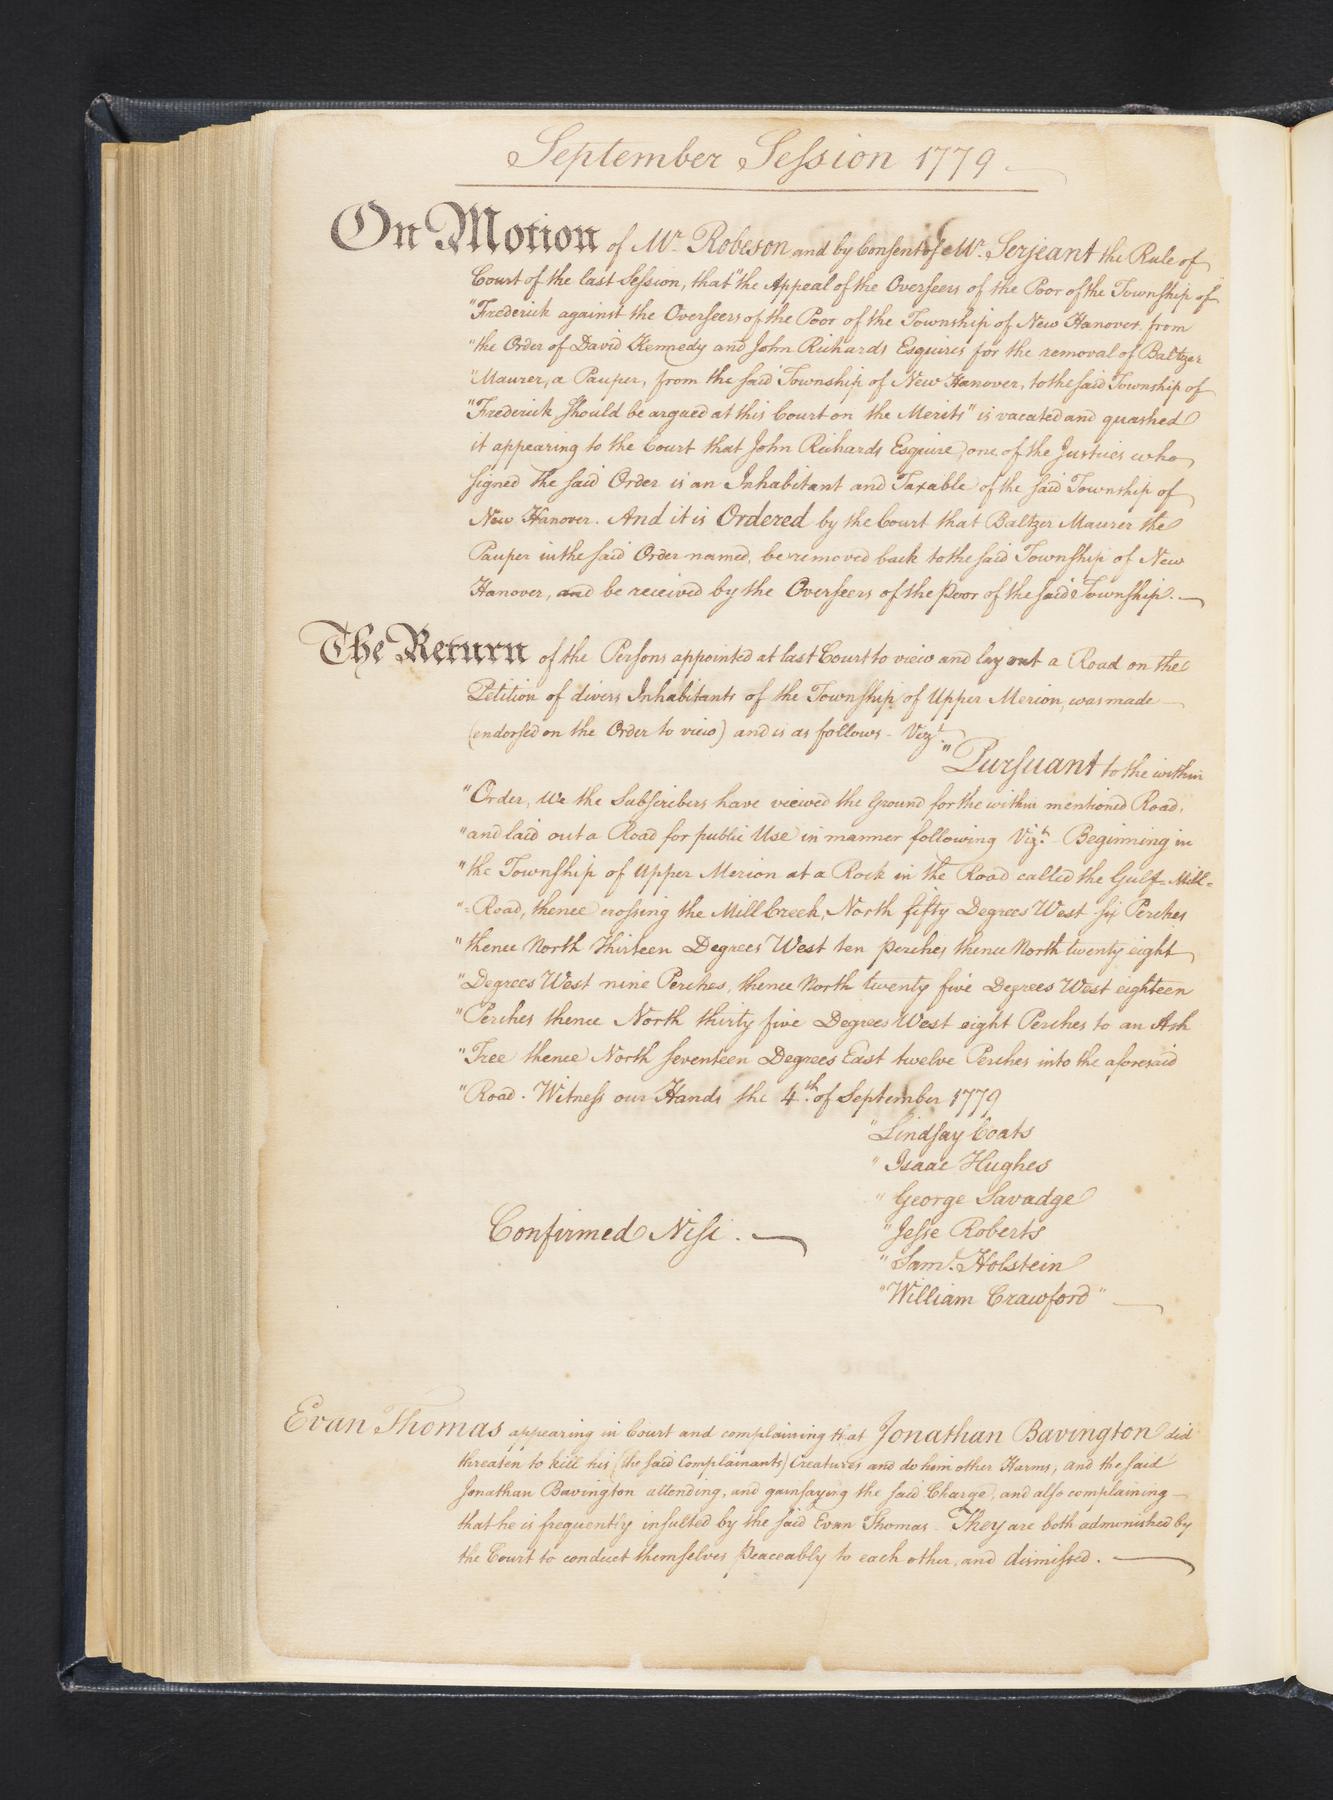 September Session 1779
On Motion of Mr. Robeson and by Consent of Mr. Serjeant the Rule of
Court of the last Session, that "the Appeal of the Overseers of the Poor of the Township of
"Frederick against the Overseers of the Poor of the Township of New Hanover, from
"the Order of David Kennedy and John Richards Esquires for the removal of Baltzer
"Maurer, a Pauper, from the said Township of New Hanover, to the said Township of
"Frederick should be argued at this Court on the Merits" is vacated and quashed
it appearing to the Court that John Richards Esquire, one of the Justices who
signed the said Order is an Inhabitant and Taxable of the said Township of
New Hanover. And it is Ordered by the Court that Baltzer Maurer the
Pauper in the said Order named, be removed back to the said Township of New
Hanover, and be received by the Overseers of the Poor of the said Township.
The Return of the Persons appointed at last Court to view and lay out a Road on the
Petition of divers Inhabitants of the Township of Upper Merion, was made
(endorsed on the Order to view) and is as follows - Vizt.
"Pursuant to the within
"Order, We the Subscribers have viewed the Ground for the within mentioned Road,
"and laid out a Road for public Use in manner following Vizt. Beginning in
"the Township of Upper Merion at a Rock in the Road called the Gulf-Mill-
"-Road, thence crossing the Mill Creek, North fifty Degrees West six Perches
"thence North Thirteen Degrees West ten perches thence North twenty eight
"Degrees West nine Perches, thence North twenty five Degrees West eighteen
"Perches thence North thirty five Degrees West eight Perches to an Ash
"Tree thence North seventeen Degrees East twelve Perches into the aforesaid
"Road. Witness our Hands the 4th. of September 1779
"Lindsay Coats
"Isaac Hughes
"George Savadge
Confirmed Nisi.
"Jesse Roberts
"Saml. Holstein
"William Crawford"
Evan Thomas appearing in Court and complaining that Jonathan Bavington did
threaten to kill his (the said Complainants) Creatures and do him other Harms, and the said
Jonathan Bavington attending, and gainsaying the said Charge, and also complaining
that he is frequently insulted by the said Evan Thomas - They are both admonished by
the Court to conduct themselves peaceably to each other, and dismissed.